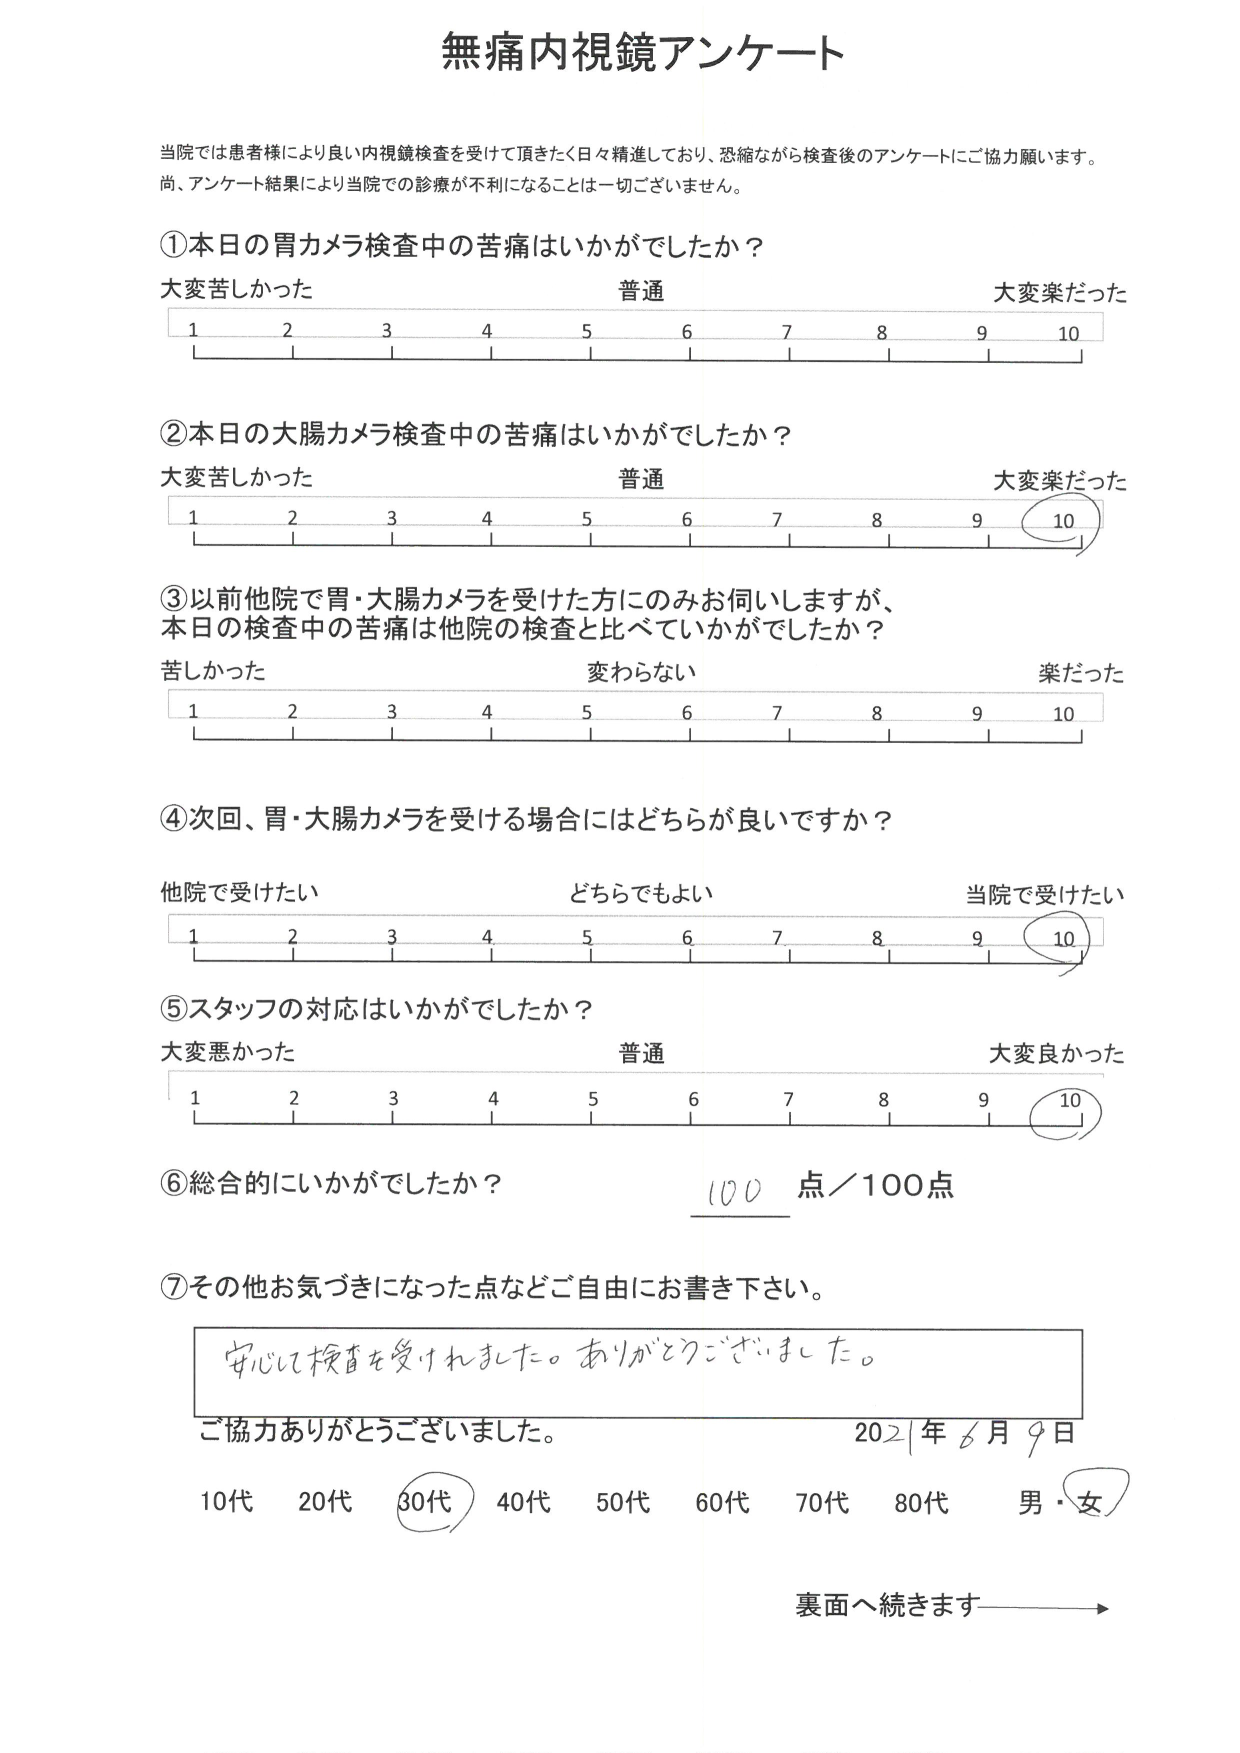 無痛内視鏡アンケート
当院では患者様により良い内視鏡検査を受けて頂きたく日々精進しており、恐縮ながら検査後のアンケートにご協力願います。
尚、アンケート結果により当院での診療が不利になることは一切ございません。
①本日の胃カメラ検査中の苦痛はいかがでしたか？
大変苦しかった 普通 大変楽だった
1 2 3 4 5 6 7 8 9 10
②本日の大腸カメラ検査中の苦痛はいかがでしたか？
大変苦しかった 普通 大変楽だった
1 2 3 4 5 6 7 8 9 10
③以前他院で胃・大腸カメラを受けた方にのみお伺いしますが、
本日の検査中の苦痛は他院の検査と比べていかがでしたか？
苦しかった 変わらない 楽だった
1 2 3 4 5 6 7 8 9 10
④次回、胃・大腸カメラを受ける場合にはどちらが良いですか？
他院で受けたい どちらでもよい 当院で受けたい
1 2 3 4 5 6 7 8 9 10
⑤スタッフの対応はいかがでしたか？
大変悪かった 普通 大変良かった
1 2 3 4 5 6 7 8 9 10
⑥総合的にいかがでしたか？ 100 点／100点
⑦その他お気づきになった点などご自由にお書き下さい。
安心して検査を受けれました。ありがとうございました。
ご協力ありがとうございました。 2021年 6月 9日
10代 20代 30代 40代 50代 60代 70代 80代 男・女
裏面へ続きます